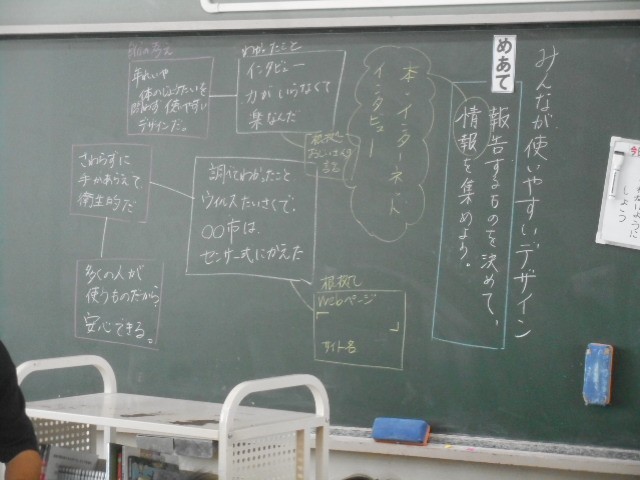 みんなが使いやすいデザイン
めあて
報告するものを決めて、
情報を集めよう。
本・インターネット
インタビュー
わかったこと
インタビュー
力がいらなくて
楽なんだ
自分の考え
年れいや
体のじょうたいを
使いやすい
デザインだ。
調べてわかったこと
ウイルスたいさくで、
〇〇市は、
センサー式にかえた
さわらずに
手があらえて
衛生的だ
多くの人が
使うものだから、
安心できる。
Webページ
「
」
サイト名